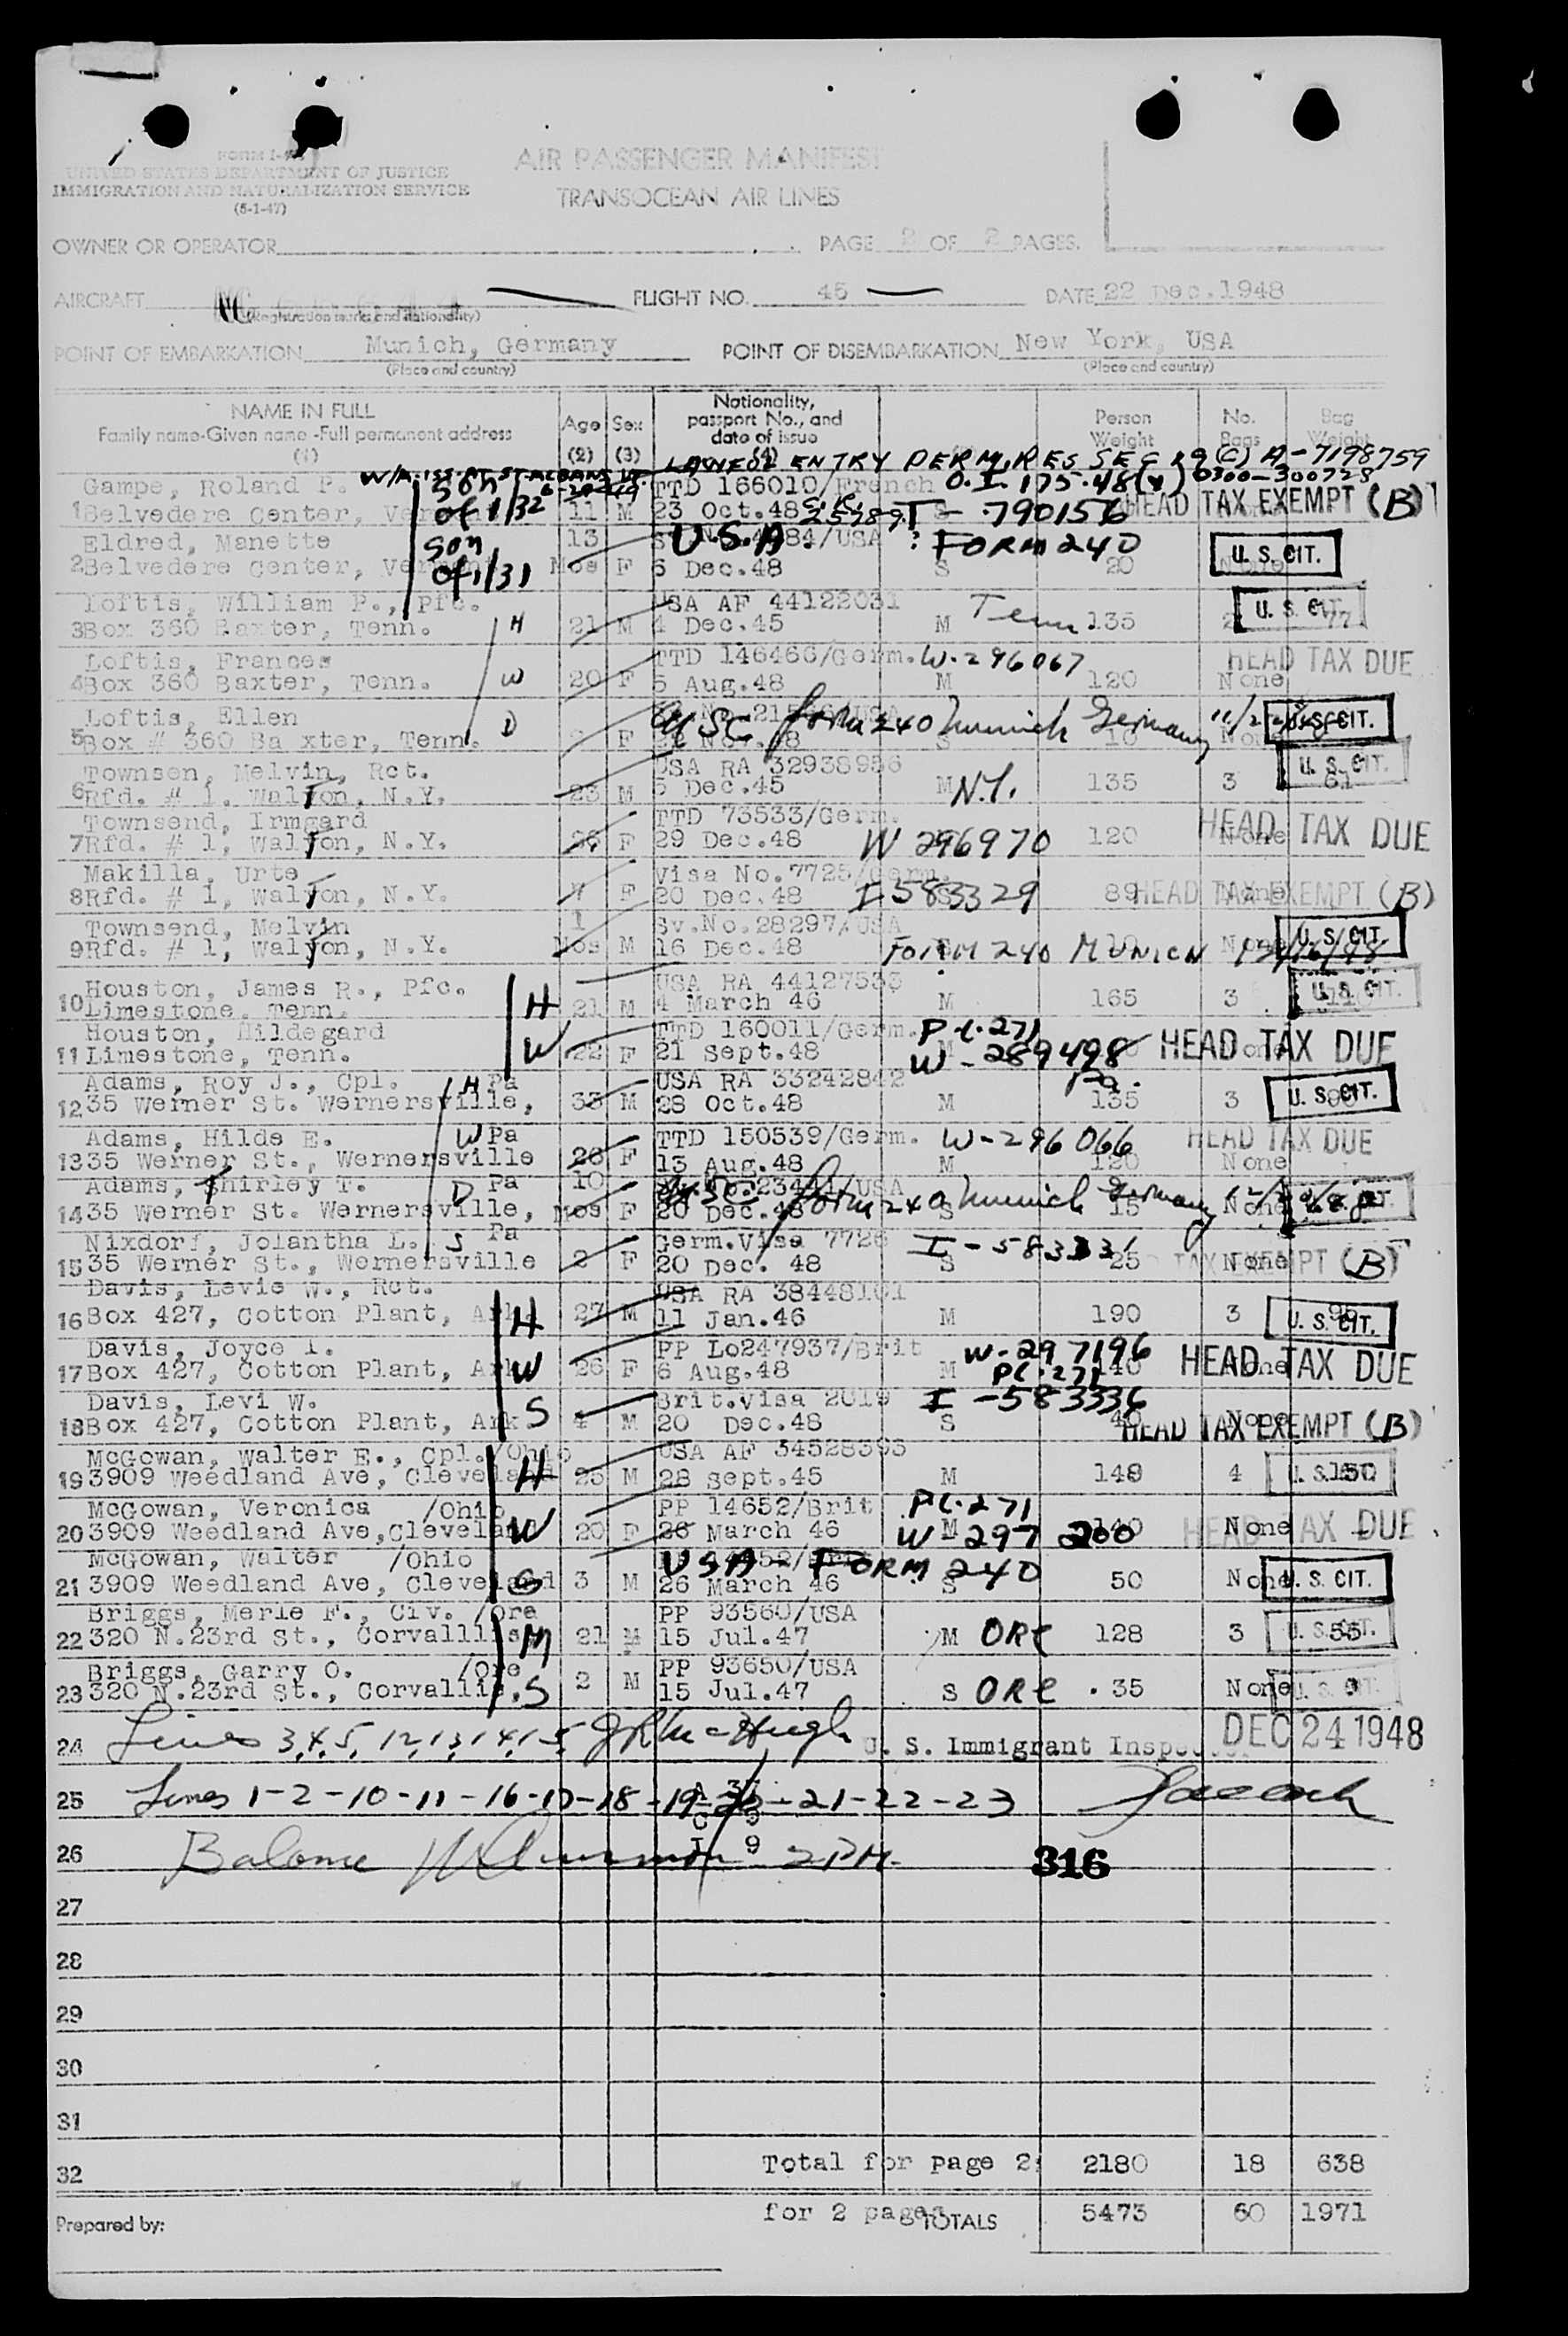 FORM I-
UNITED STATES DEPARTMENT OF JUSTICE
IMMIGRATION AND NATURALIZATION SERVICE
(5-1-47)
AIR PASSENGER MANIFEST
TRANSOCEAN AIR LINES
OWNER OR OPERATOR PAGE 2 OF 2 PAGES.
AIRCRAFT NC FLIGHT NO. 45 DATE 22 Dec.1948
(Registration marks and nationality)
POINT OF EMBARKATION Munich, Germany POINT OF DISEMBARKATION New York, USA
(Place and country) (Place and country)
NAME IN FULL Age Sex Nationality, Person No. Bag
Family name-Given name -Full permanent address passport No., and Weight Bags Weight
date of issue
(1) (2) (3) (4)
LAWFUL ENTRY PERM. RES SEC 19 (C) A-7198759
W/A. ISS. AT. ST. ALBANS VT. 0300-300728
Gampe, Roland P. son TTD 166010/French O.I. 175.48(4)
1 Belvedere Center, of 1/32 11 M 23 Oct.48 T- 790156 HEAD TAX EXEMPT (B)
Eldred, Manette son 13 U.S.A. 84/USA FORM 240
2 Belvedere Center, Vermont of 1/31 Mos F 6 Dec.48 S 20 None U. S. CIT.
Loftis, William P., Pfc. USA AF 44122031 Tenn
3 Box 360 Baxter, Tenn. H 21 M 4 Dec.45 M 135 2 77 U. S. CIT.
Loftis, Frances TTD 146466/Germ. W-296067 HEAD TAX DUE
4 Box 360 Baxter, Tenn. W 20 F 5 Aug.48 M 120 None
Loftis, Ellen USC form 240 Munich Germany
5 Box # 360 Ba xter, Tenn. D 2 F S 10 None U. S. CIT.
Townsen, Melvin, Rct. USA RA 32938956 U. S. CIT.
6 Rfd. # 1, Walton, N.Y. 23 M 5 Dec.45 M N.Y. 135 3 61
Townsend, Irmgard TTD 73533/Germ.
7 Rfd. # 1, Walton, N.Y. 26 F 29 Dec.48 W 296970 120 None HEAD TAX DUE
Makilla, Urte Visa No.7725/Germ.
8 Rfd. # 1, Walton, N.Y. F 20 Dec.48 I-583329 89 None HEAD TAX EXEMPT (B)
Townsend, Melvin 1 Sv.No.28297/USA
9 Rfd. # 1, Walton, N.Y. Mos M 16 Dec.48 FORM 240 MUNICH 12/16/48 None U. S. CIT.
Houston, James R., Pfc. USA RA 44127533
10 Limestone, Tenn. H 21 M 4 March 46 M 165 3 U. S. CIT.
Houston, Hildegard TTD 160011/Germ. PL.271
11 Limestone, Tenn. W 22 F 21 Sept.48 W-289498 None HEAD TAX DUE
Adams, Roy J., Cpl. H Pa USA RA 33242842 Pa.
12 35 Werner St. Wernersville, 33 M 28 Oct.48 M 135 3 U. S. CIT.
Adams, Hilde E. W Pa TTD 150539/Germ. W-296066 HEAD TAX DUE
13 35 Werner St., Wernersville 26 F 13 Aug.48 M 120 None
Adams, Shirley T. D Pa 10 USC form 240 Munich Germany
14 35 Werner St. Wernersville, Mos F 20 Dec.48 S 15 None
Nixdorf, Jolantha L. S Pa Germ.Visa 7726 I-583331
15 35 Werner St., Wernersville 2 F 20 Dec. 48 S 25 None TAX EXEMPT (B)
Davis, Levie W., Rct. USA RA 38448101
16 Box 427, Cotton Plant, Ark. H 27 M 11 Jan.46 M 190 3 U. S. CIT.
Davis, Joyce I. PP Lo247937/Brit W-297196
17 Box 427, Cotton Plant, Ark W 26 F 6 Aug.48 M PL.271 140 None HEAD TAX DUE
Davis, Levi W. Brit.Visa 2019 I-583336
18 Box 427, Cotton Plant, Ark S 4 M 20 Dec.48 S 40 None HEAD TAX EXEMPT (B)
McGowan, Walter E., Cpl. /Ohio USA AF 34528393
19 3909 Weedland Ave, Cleveland H 25 M 28 Sept.45 M 149 4 150 U. S.
McGowan, Veronica /Ohio PP 14652/Brit PL.271
20 3909 Weedland Ave,Cleveland W 20 F 26 March 46 M W-297200 140 None HEAD TAX DUE
McGowan, Walter /Ohio USA - FORM 240
21 3909 Weedland Ave, Cleveland 3 M 26 March 46 S 50 None U. S. CIT.
Briggs, Merle F., Civ. /Ore PP 93560/USA
22 320 N.23rd St., Corvallis M 21 M 15 Jul.47 M ORE 128 3 55 U. S. CIT.
Briggs, Garry O. /Ore PP 93650/USA
23 320 N.23rd St., Corvallis, S 2 M 15 Jul.47 S ORE 35 None U. S. CIT.
24 Lines 3,4,5, 12,13,14,15 U. S. Immigrant Inspector DEC 24 1948
25 Lines 1-2-10-11-16-17-18-19-20-21-22-23
26 Balance 2PM 316
27
28
29
30
31
Total for page 2: 2180 18 638
32
for 2 pages TOTALS 5473 60 1971
Prepared by: